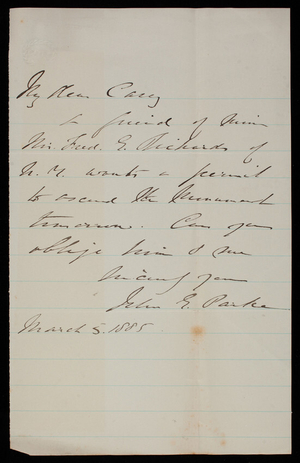 My dear Casey
A friend of mine
Mr. Fred. E. Richards of
N. Y. wants a permit
to ascend the Monument
tomorrow. Can you
oblige him & me
truly yours
John G. Parke
March 5. 1885